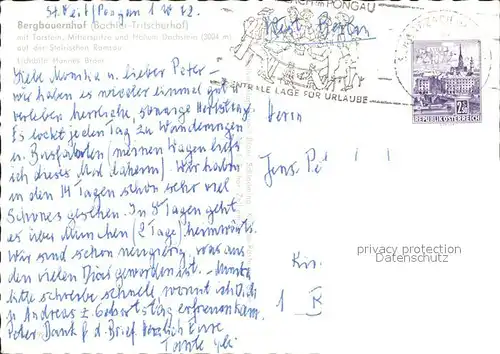 St. Veit/Pongau
Bergbauernhof (Bachler-Tritscherhof)
mit Torstein, Mitterspitze und Hohem Dachstein (2004 m)
auf der Steirischen Ramsau
Liebe Monika u. lieber Peter –
wir haben es wieder einmal gut
herrliche, sonnige Herbsttage.
Es lockt jeden Tag zu Wanderungen
u. Busfahrten (meinen Wagen ließ
ich dieses Mal daheim). Wir haben
in den 14 Tagen schon sehr viel
Schönes gesehen. In 8 Tagen geht
es über München (2 Tage) heimwärts.
Wir sind schon neugierig, was aus
den vielen Dias geworden ist. –
bitte schreibe schnell, womit ich Dich
u. Andreas z. Geburtstag erfreuen kann.
Peter Dank f. d. Brief. Herzlich Eure
Tante
PONGAU
ZENTRALE LAGE FÜR URLAUBE
REPUBLIK ÖSTERREICH
Herrn
Jens
1
privacy protection
Datenschutz